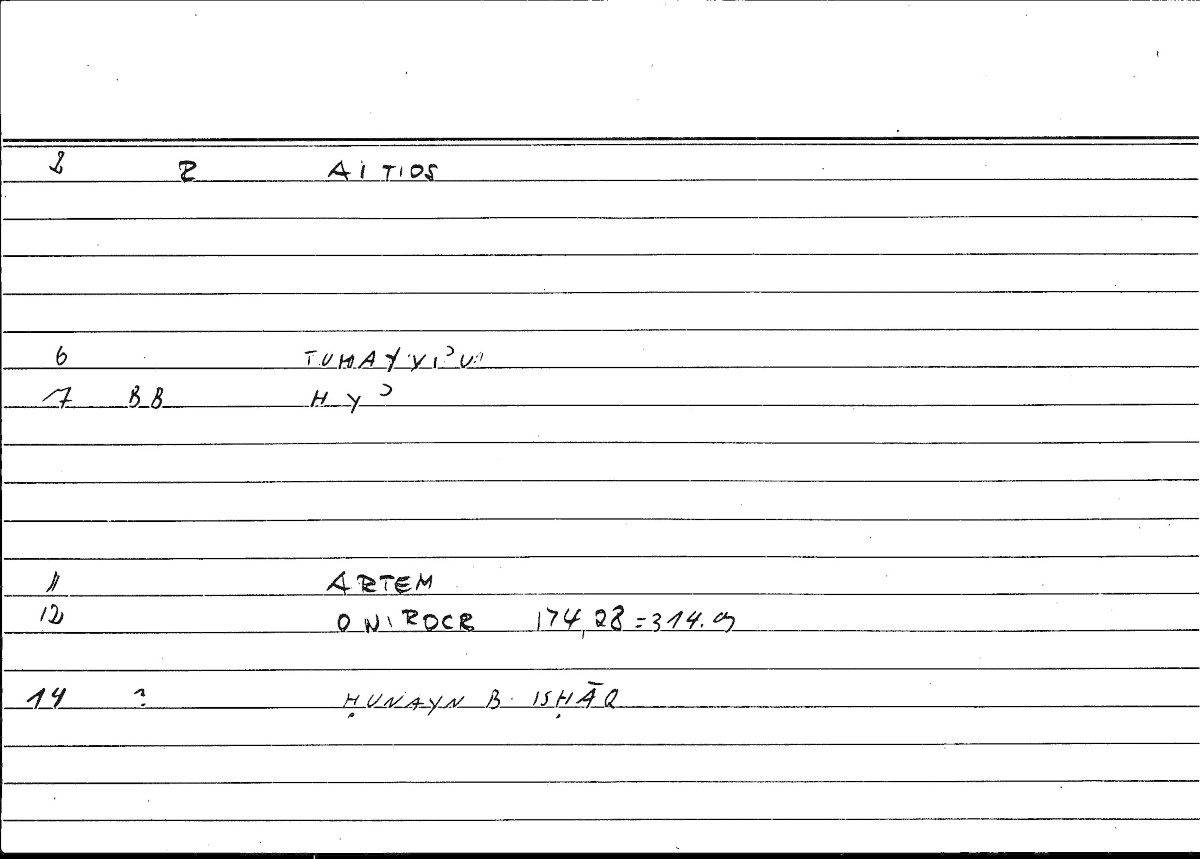 2 R AITIOS
6 TUHAYYIʾU
7 BB HYʾ
11 ARTEM
12 ONIROCR 174,28=314.9
14 ? ḤUNAYN B. ISḤĀQ